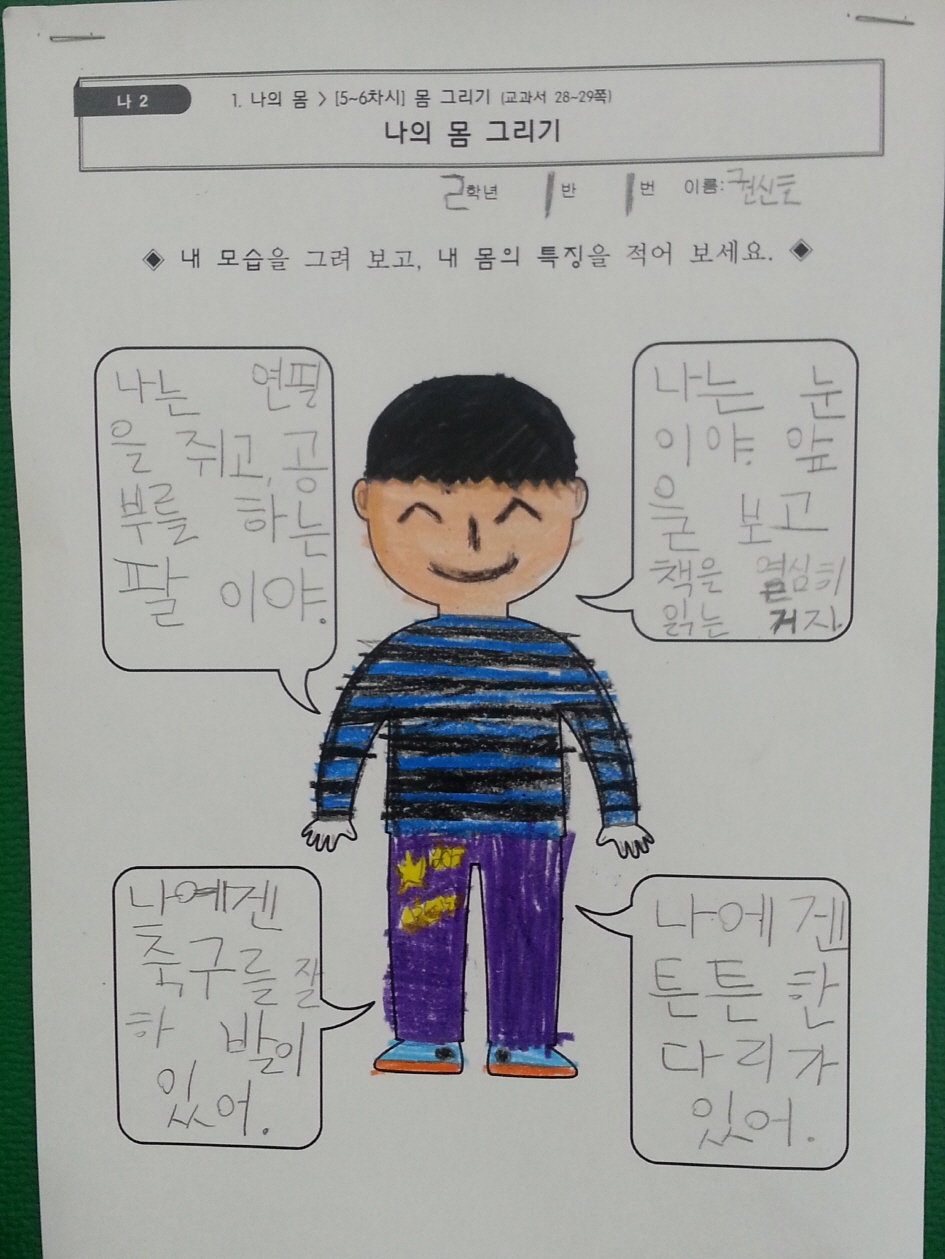 나 2
1. 나의 몸 > [5~6차시] 몸 그리기 (교과서 28~29쪽)
나의 몸 그리기
2학년 1반 1번 이름: 권신
◈ 내 모습을 그려 보고, 내 몸의 특징을 적어 보세요. ◈
나는 연필
을 쥐고, 공
부를 하는
팔 이야.
나는 눈
이야. 앞
을 보고
책을 열심히
읽는 거지.
나에겐
축구를 잘
하 발이
있어.
나에겐
튼튼 한
다리가
있어.